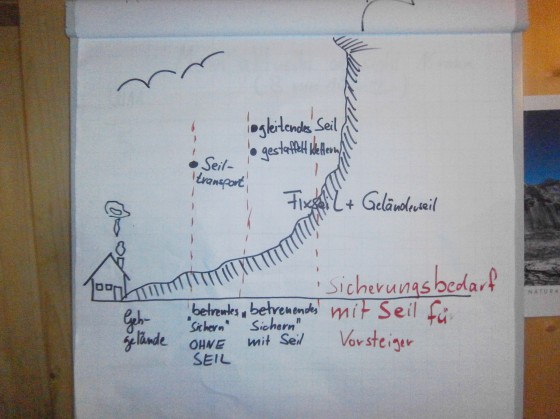 • gleitendes Seil
• gestaffelt klettern
• Seil-
transport
Fixseil + Geländerseil
Sicherungsbedarf
mit Seil fü
Vorsteiger
Geh-
gelände
betreutes
"sichern"
OHNE
SEIL
betreuendes
"Sichern"
mit Seil